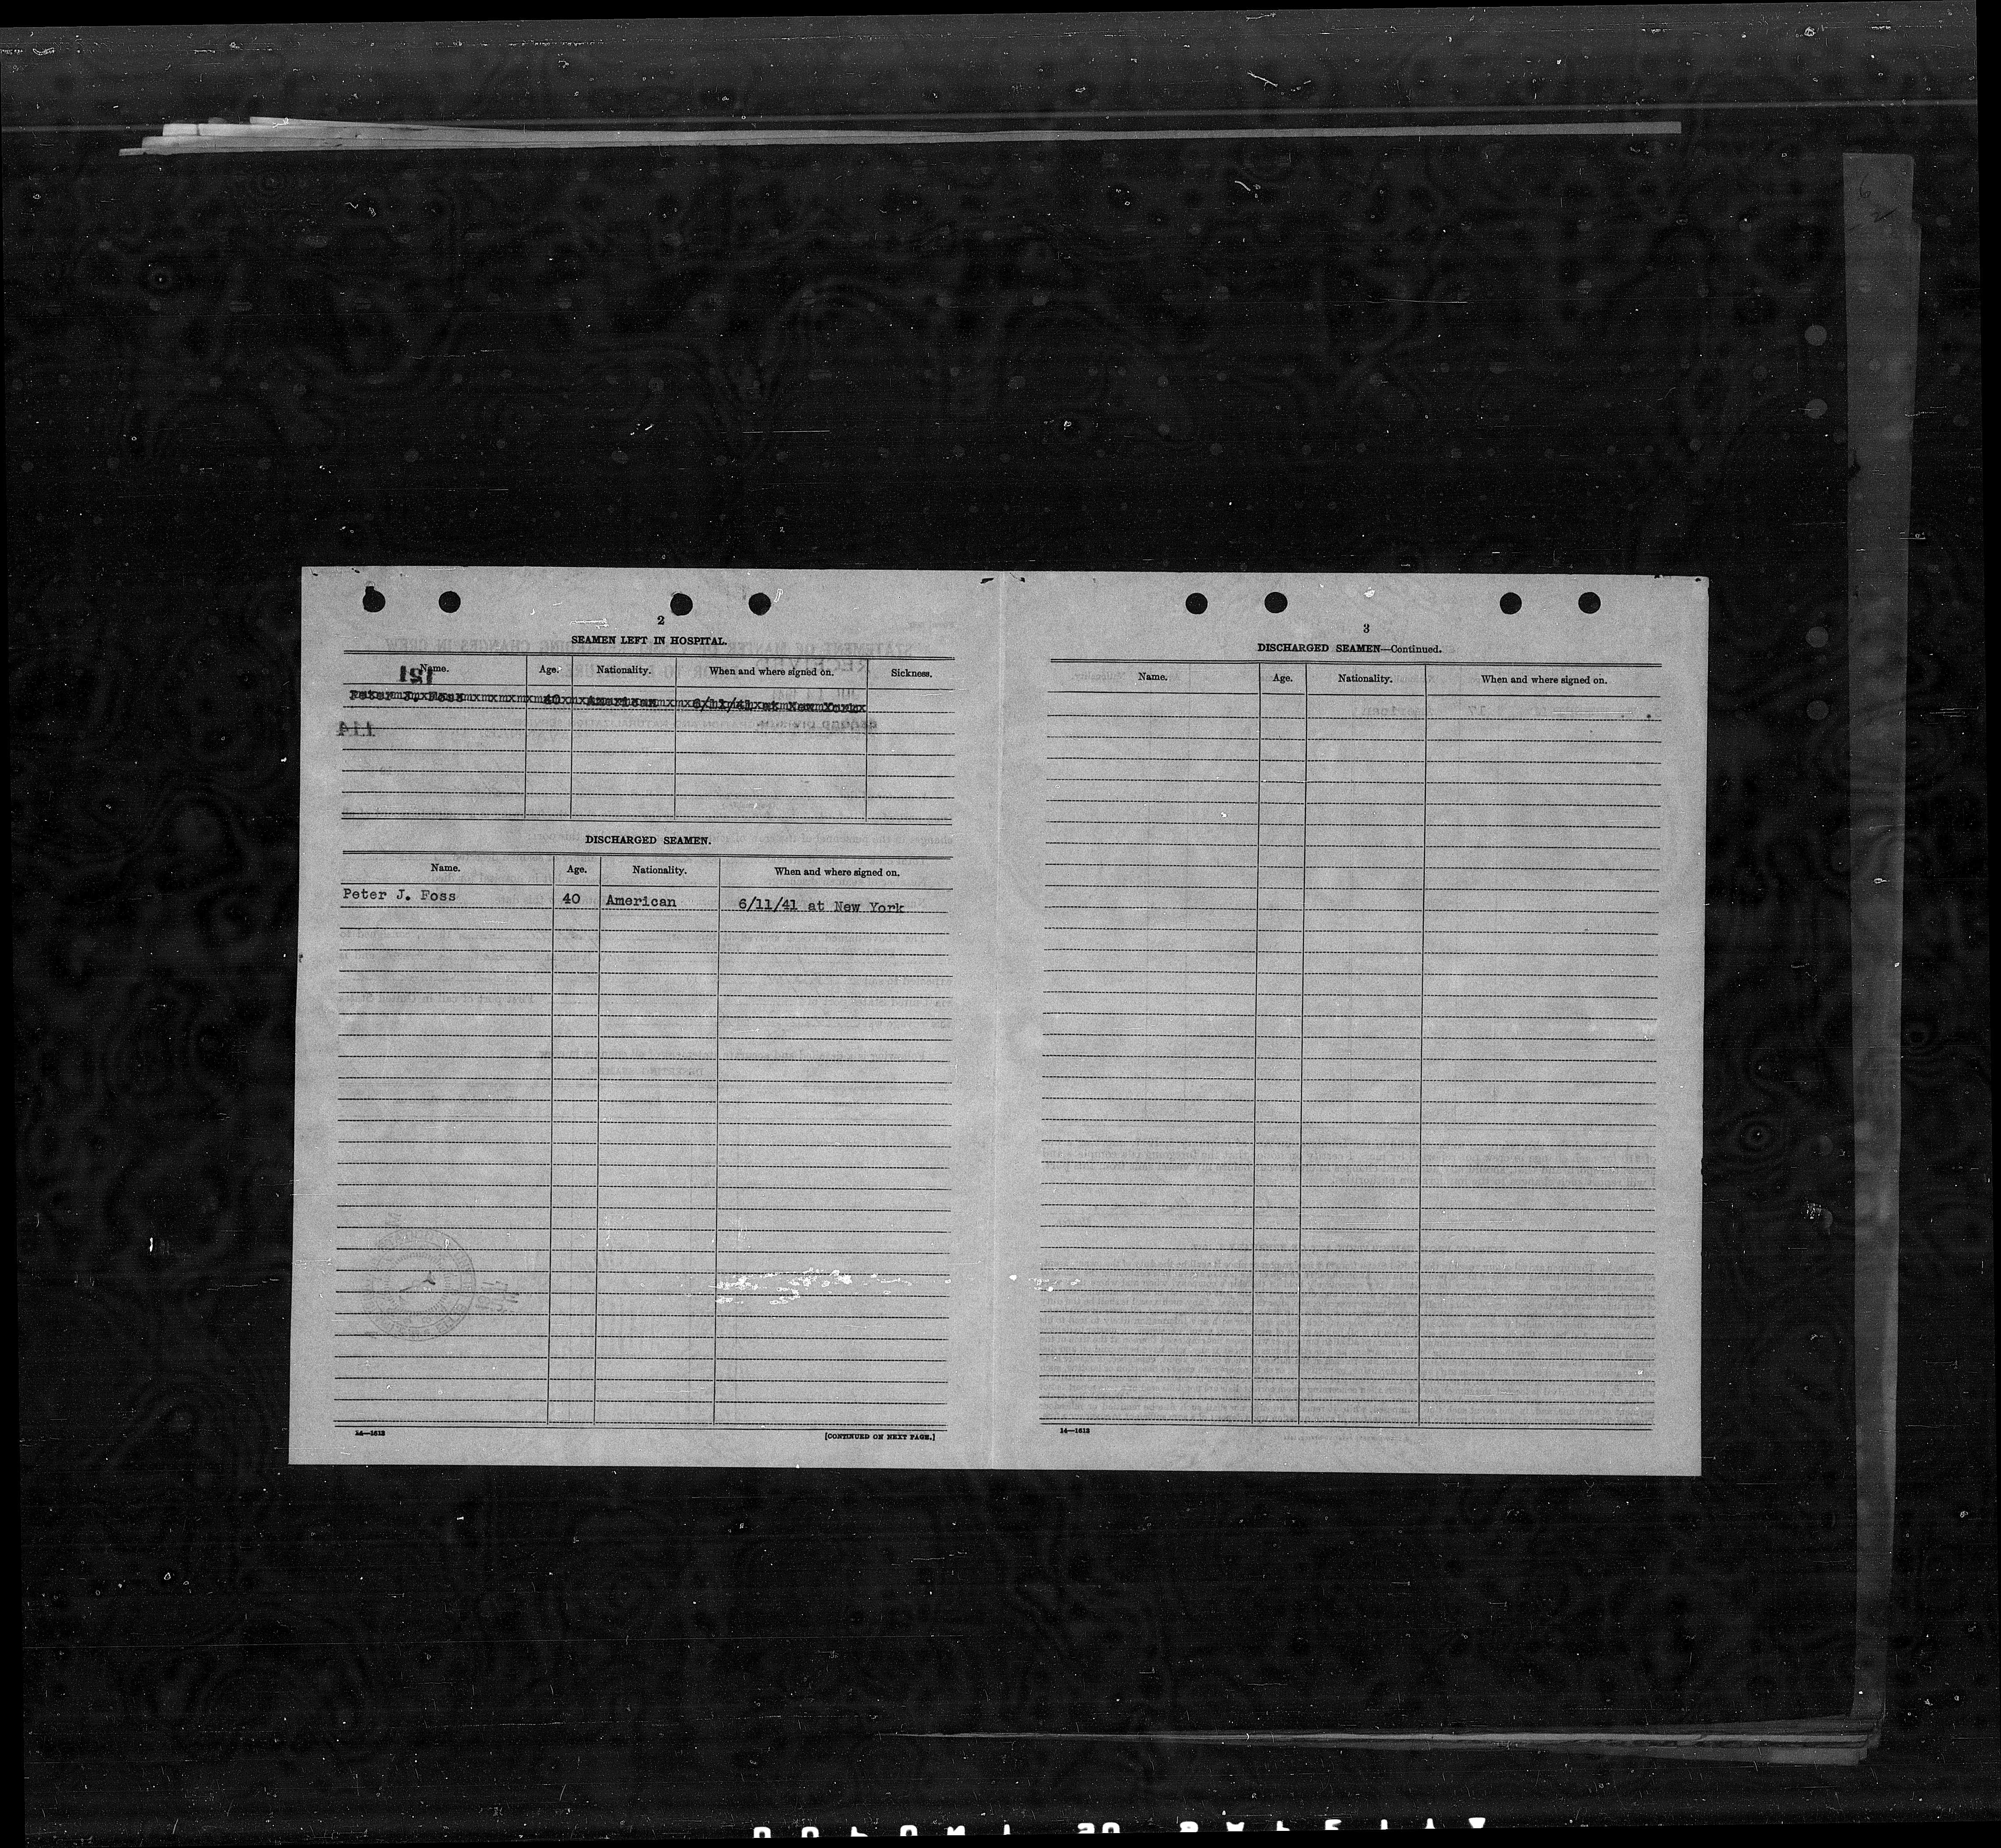 2
SEAMEN LEFT IN HOSPITAL.
Name. Age. Nationality. When and where signed on. Sickness.
Peter J. Foss 40 American 6/11/41 at New York
DISCHARGED SEAMEN.
Name. Age. Nationality. When and where signed on.
Peter J. Foss 40 American 6/11/41 at New York
14—1613
[CONTINUED ON NEXT PAGE.]
3
DISCHARGED SEAMEN—Continued.
Name. Age. Nationality. When and where signed on.
14—1613